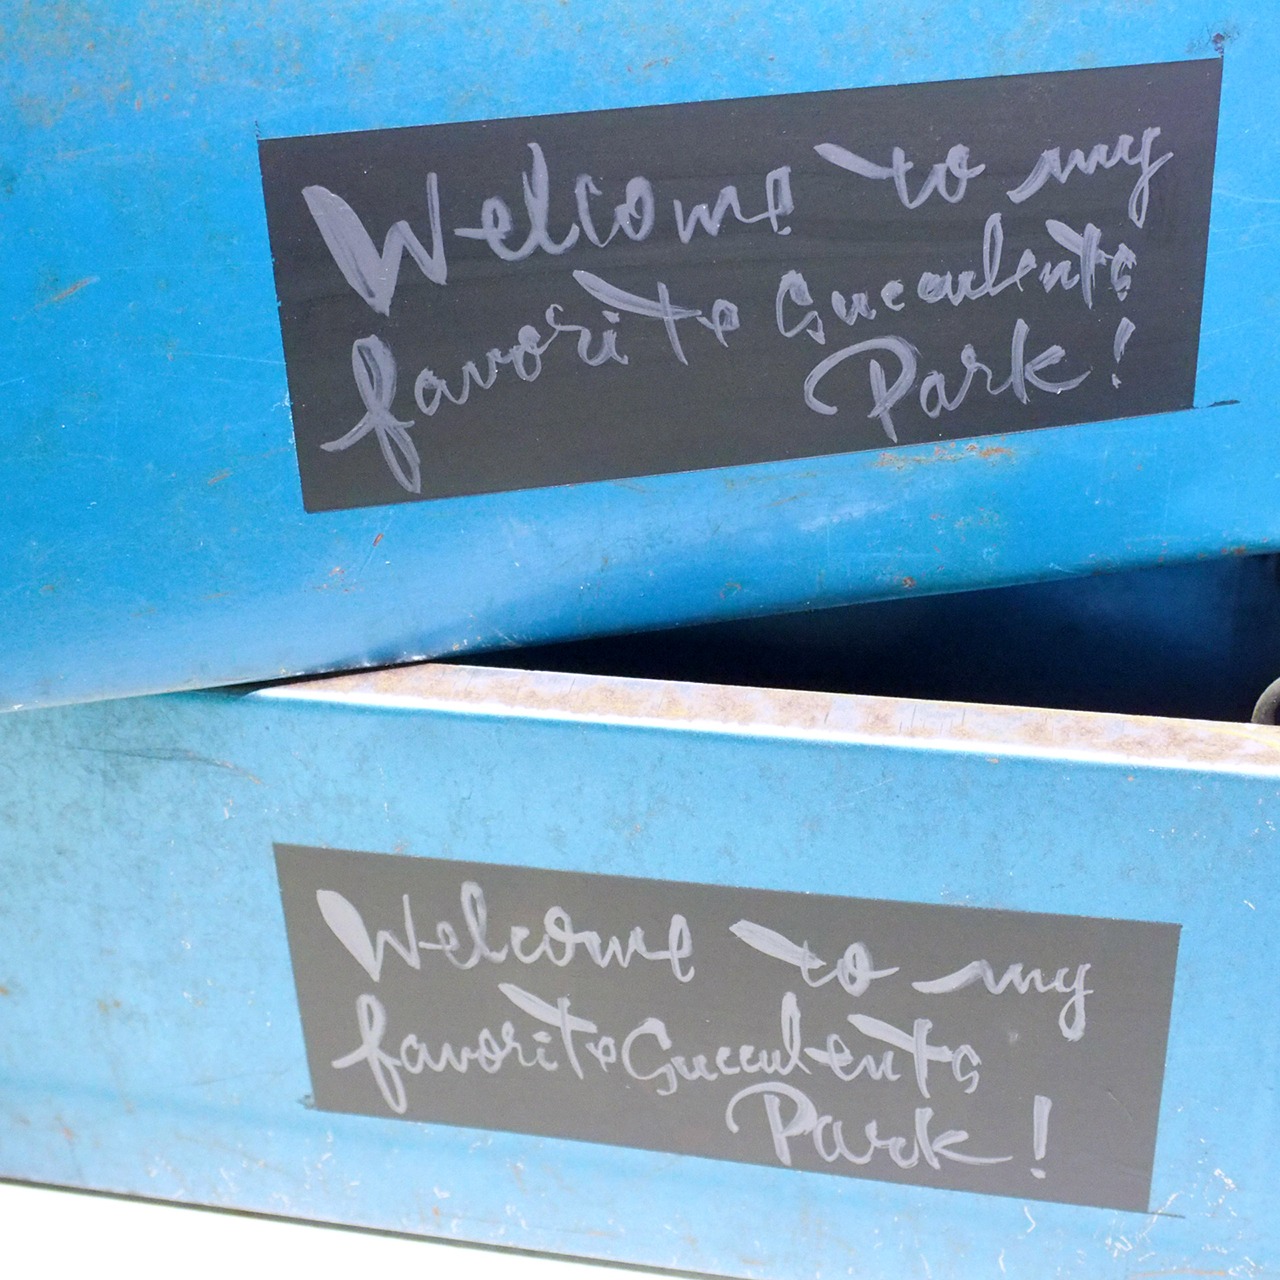 Welcome to my
favorite Succulents
Park!
Welcome to my
favorite Succulents
Park!